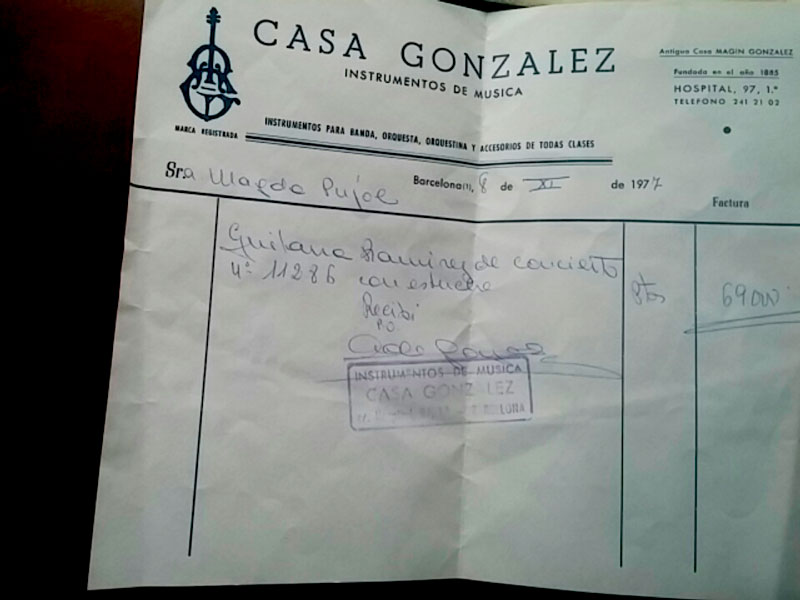 CASA GONZALEZ
INSTRUMENTOS DE MUSICA
Antigua Casa MAGIN GONZALEZ
Fundada en el año 1885
HOSPITAL, 97, 1.º
TELEFONO 241 21 02
MARCA REGISTRADA
INSTRUMENTOS PARA BANDA, ORQUESTA, ORQUESTINA Y ACCESORIOS DE TODAS CLASES
Sra Magda Pujol
Barcelona (1), 8 de XI de 1977
Factura
Guitarra Ramirez de concierto
Nº 11286 con estuche
Ptas 69.000
Recibi
P.O.
INSTRUMENTOS DE MUSICA
CASA GONZ LEZ